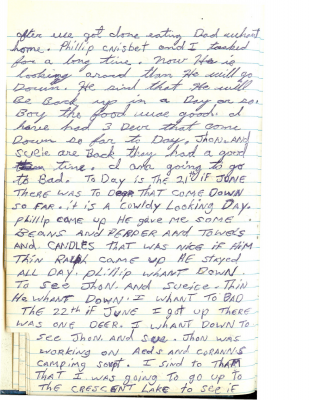 after we got done eating Dad whant
home. Phillip cnisbet and I talked
for a long time. Now He is
looking around than He will go
Down. He sind that He will
Be Back up in a Day or so.
Boy the food was good. I
have had 3 Deer that come
Down so far to Day. JHON. AND
Suzie are Back they had a good
time. I am going to go
to Bad. To Day is THE 21th if JUNE
THERE WAS TO DEER THAT COME DOWN
SO FAR. it is A cowldy Looking DAY.
pHillip came up HE gave me some
BEANS AND PEPPER AND TOWELS
AND. CANDLES THAT WAS NICE if HIM
THIN RALPH CAME UP HE STAYED
ALL DAY. pHillip WHANT DOWN.
TO SEE JHON. AND Sueice. THIN
He WHANT DOWN. I WHANT TO BAD
THE 22th if JUNE I got up THERE
WAS ONE DEER. I WHANT DOWN TO
SEE JHON. AND Sue. JHON WAS
WORKING ON AEDS AND CORANNS
CAMPING SOUPT. I SIND TO THAM
THAT I WAS GOING TO GO UP TO
THE CRESCENT LAKE TO SEE IF